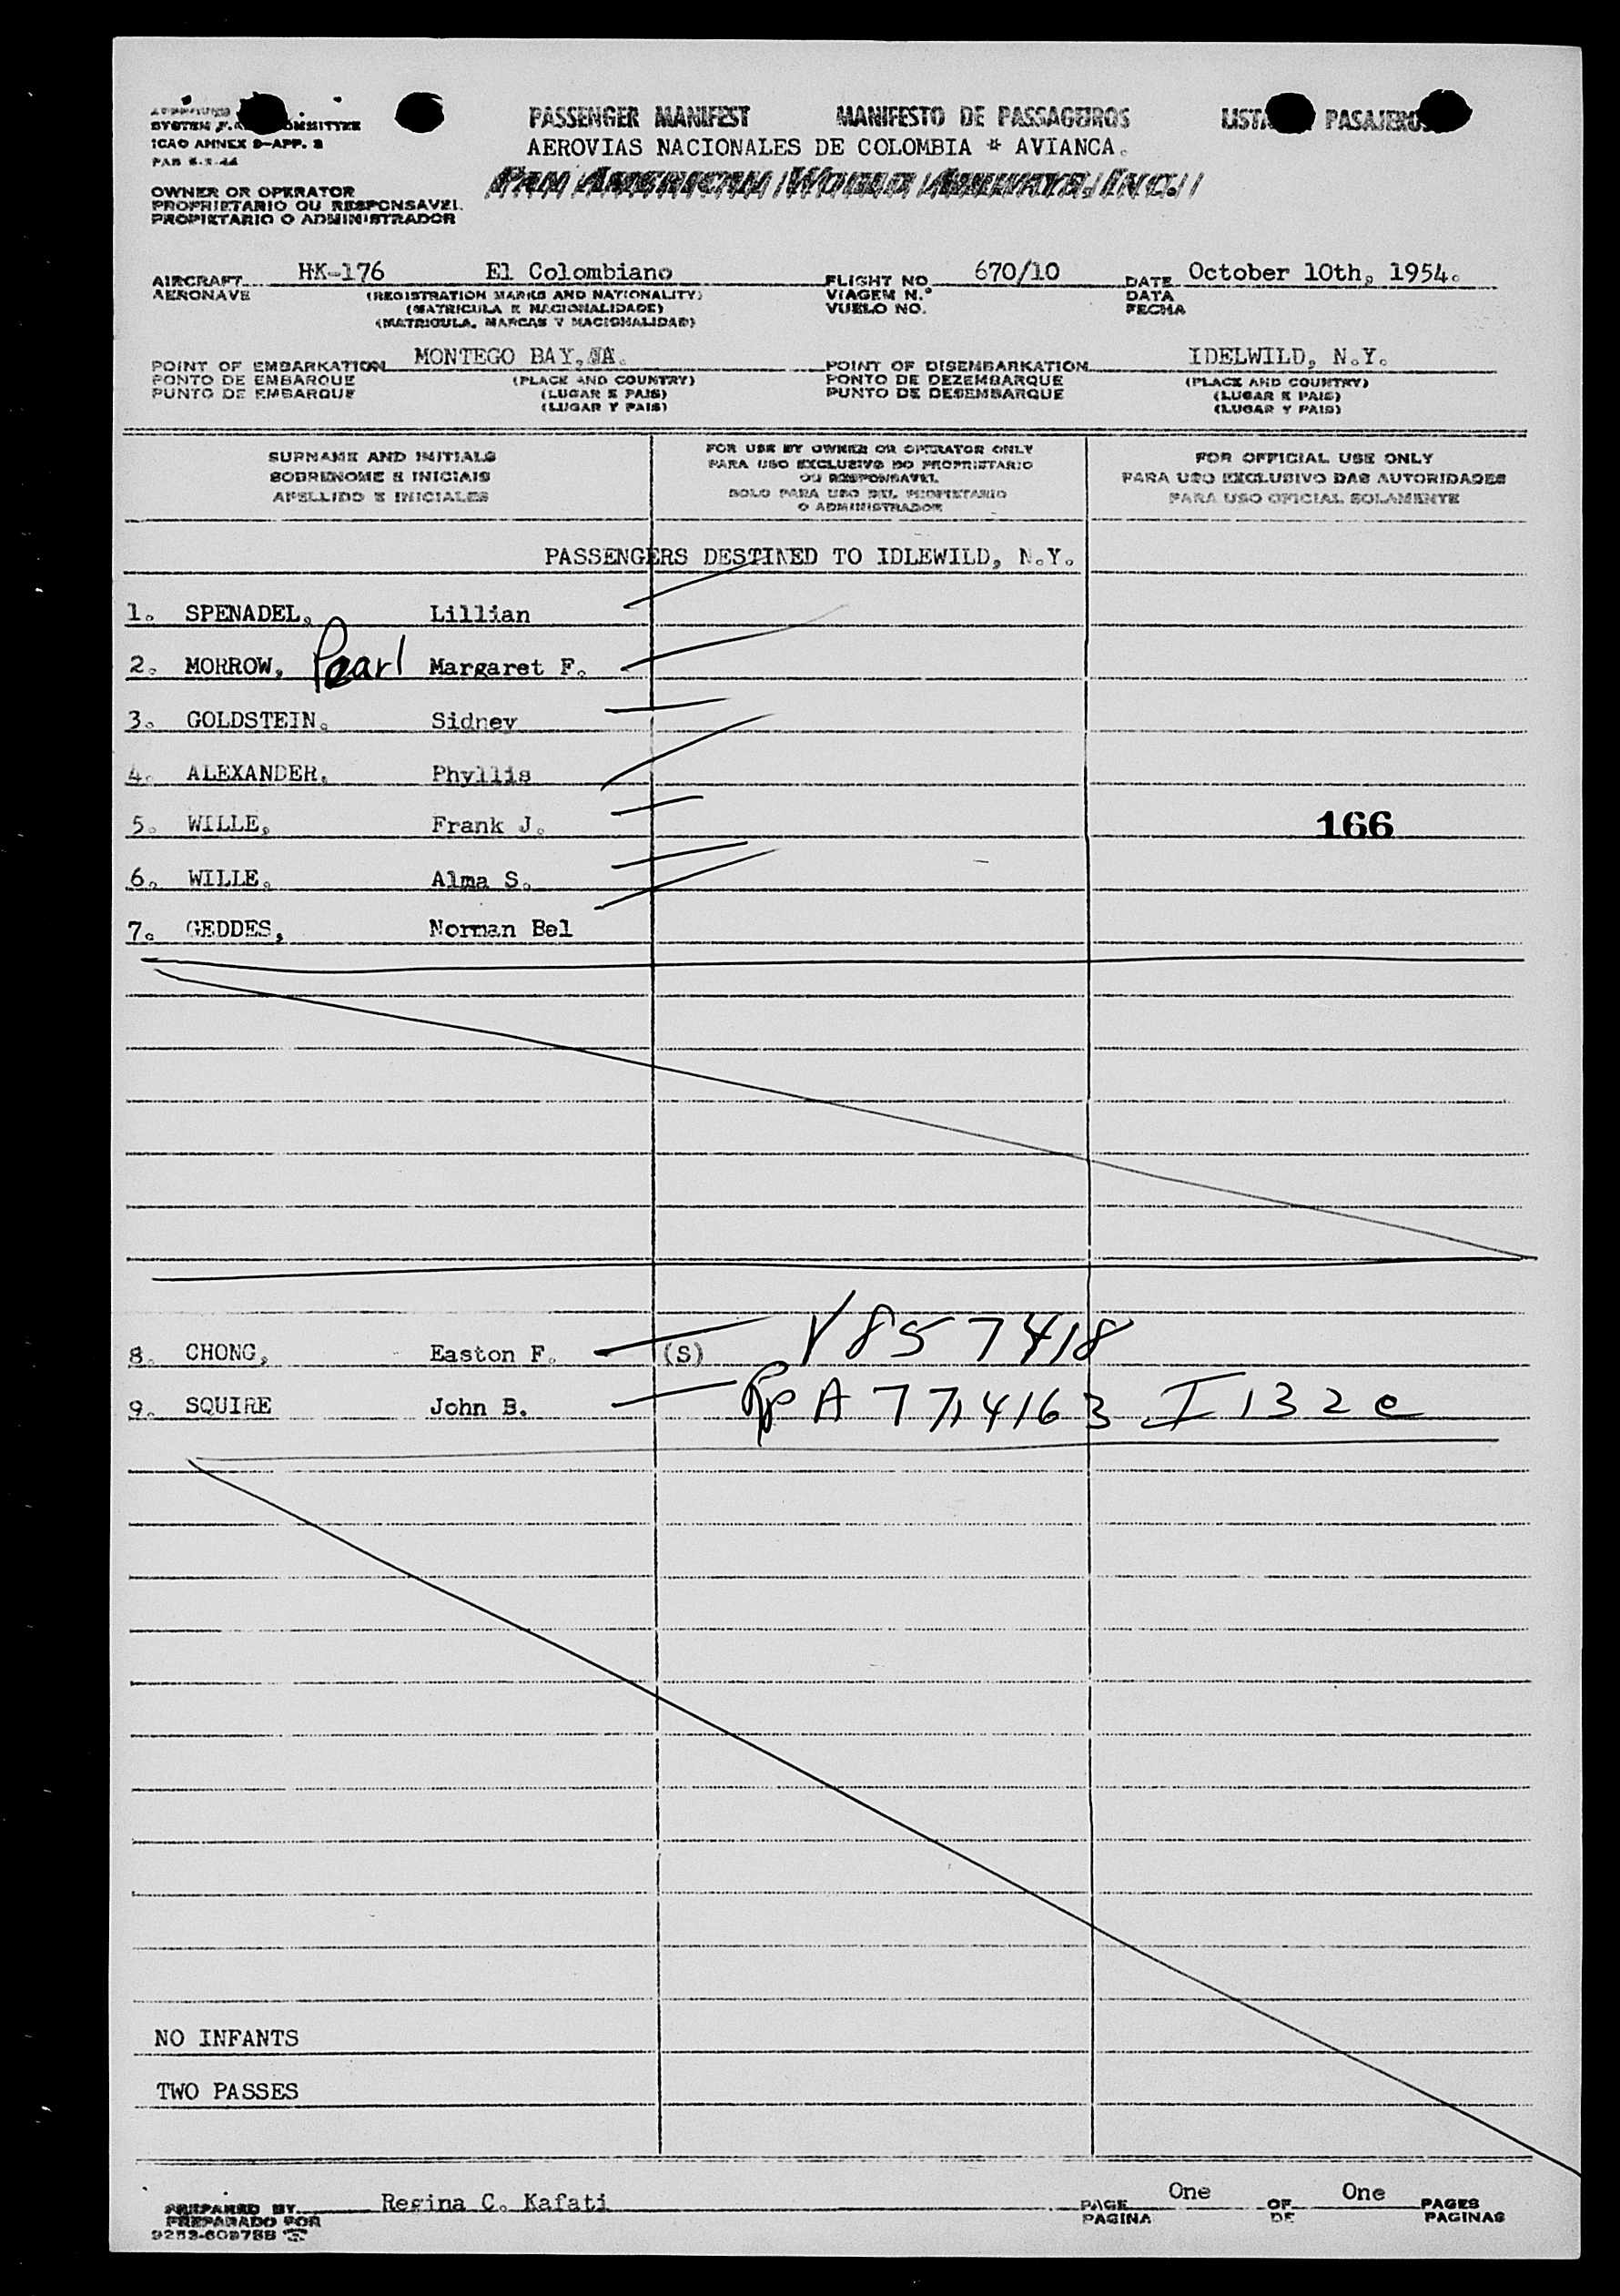 PASSENGER MANIFEST MANIFESTO DE PASSAGEIROS LISTA PASAJEROS
SYSTEM
ICAO ANNEX 9-APP. 3
AEROVIAS NACIONALES DE COLOMBIA * AVIANCA.
PAN AMERICAN WORLD AIRWAYS, INC.
OWNER OR OPERATOR
PROPRIETARIO OU RESPONSAVEL
PROPIETARIO O ADMINISTRADOR
AIRCRAFT HK-176 El Colombiano FLIGHT NO 670/10 DATE October 10th, 1954.
AERONAVE (REGISTRATION MARKS AND NATIONALITY) VIAGEM N.° DATA
(MATRICULA E NACIONALIDADE) VUELO NO. FECHA
(MATRICULA, MARCAS Y NACIONALIDAD)
POINT OF EMBARKATION MONTEGO BAY, JA. POINT OF DISEMBARKATION IDELWILD, N.Y.
PONTO DE EMBARQUE (PLACE AND COUNTRY) PONTO DE DEZEMBARQUE (PLACE AND COUNTRY)
PUNTO DE EMBARQUE (LUGAR E PAIS) PUNTO DE DESEMBARQUE (LUGAR E PAIS)
(LUGAR Y PAIS) (LUGAR Y PAIS)
SURNAME AND INITIALS FOR USE BY OWNER OR OPERATOR ONLY FOR OFFICIAL USE ONLY
SOBRENOME E INICIAIS PARA USO EXCLUSIVO DO PROPRIETARIO PARA USO EXCLUSIVO DAS AUTORIDADES
OU RESPONSAVEL
APELLIDO E INICIALES SOLO PARA USO DEL PROPIETARIO PARA USO OFICIAL SOLAMENTE
O ADMINISTRADOR
PASSENGERS DESTINED TO IDLEWILD, N.Y.
1. SPENADEL, Lillian
2. MORROW, Pearl Margaret F.
3. GOLDSTEIN. Sidney
4. ALEXANDER. Phyllis
5. WILLE, Frank J. 166
6. WILLE. Alma S.
7. GEDDES, Norman Bel
8. CHONG, Easton F. (S) V857418
9. SQUIRE John B. A 7714163 I 132 e
NO INFANTS
TWO PASSES
PREPARED BY Regina C. Kafati PAGE One OF One PAGES
PREPARADO POR PAGINA DE PAGINAS